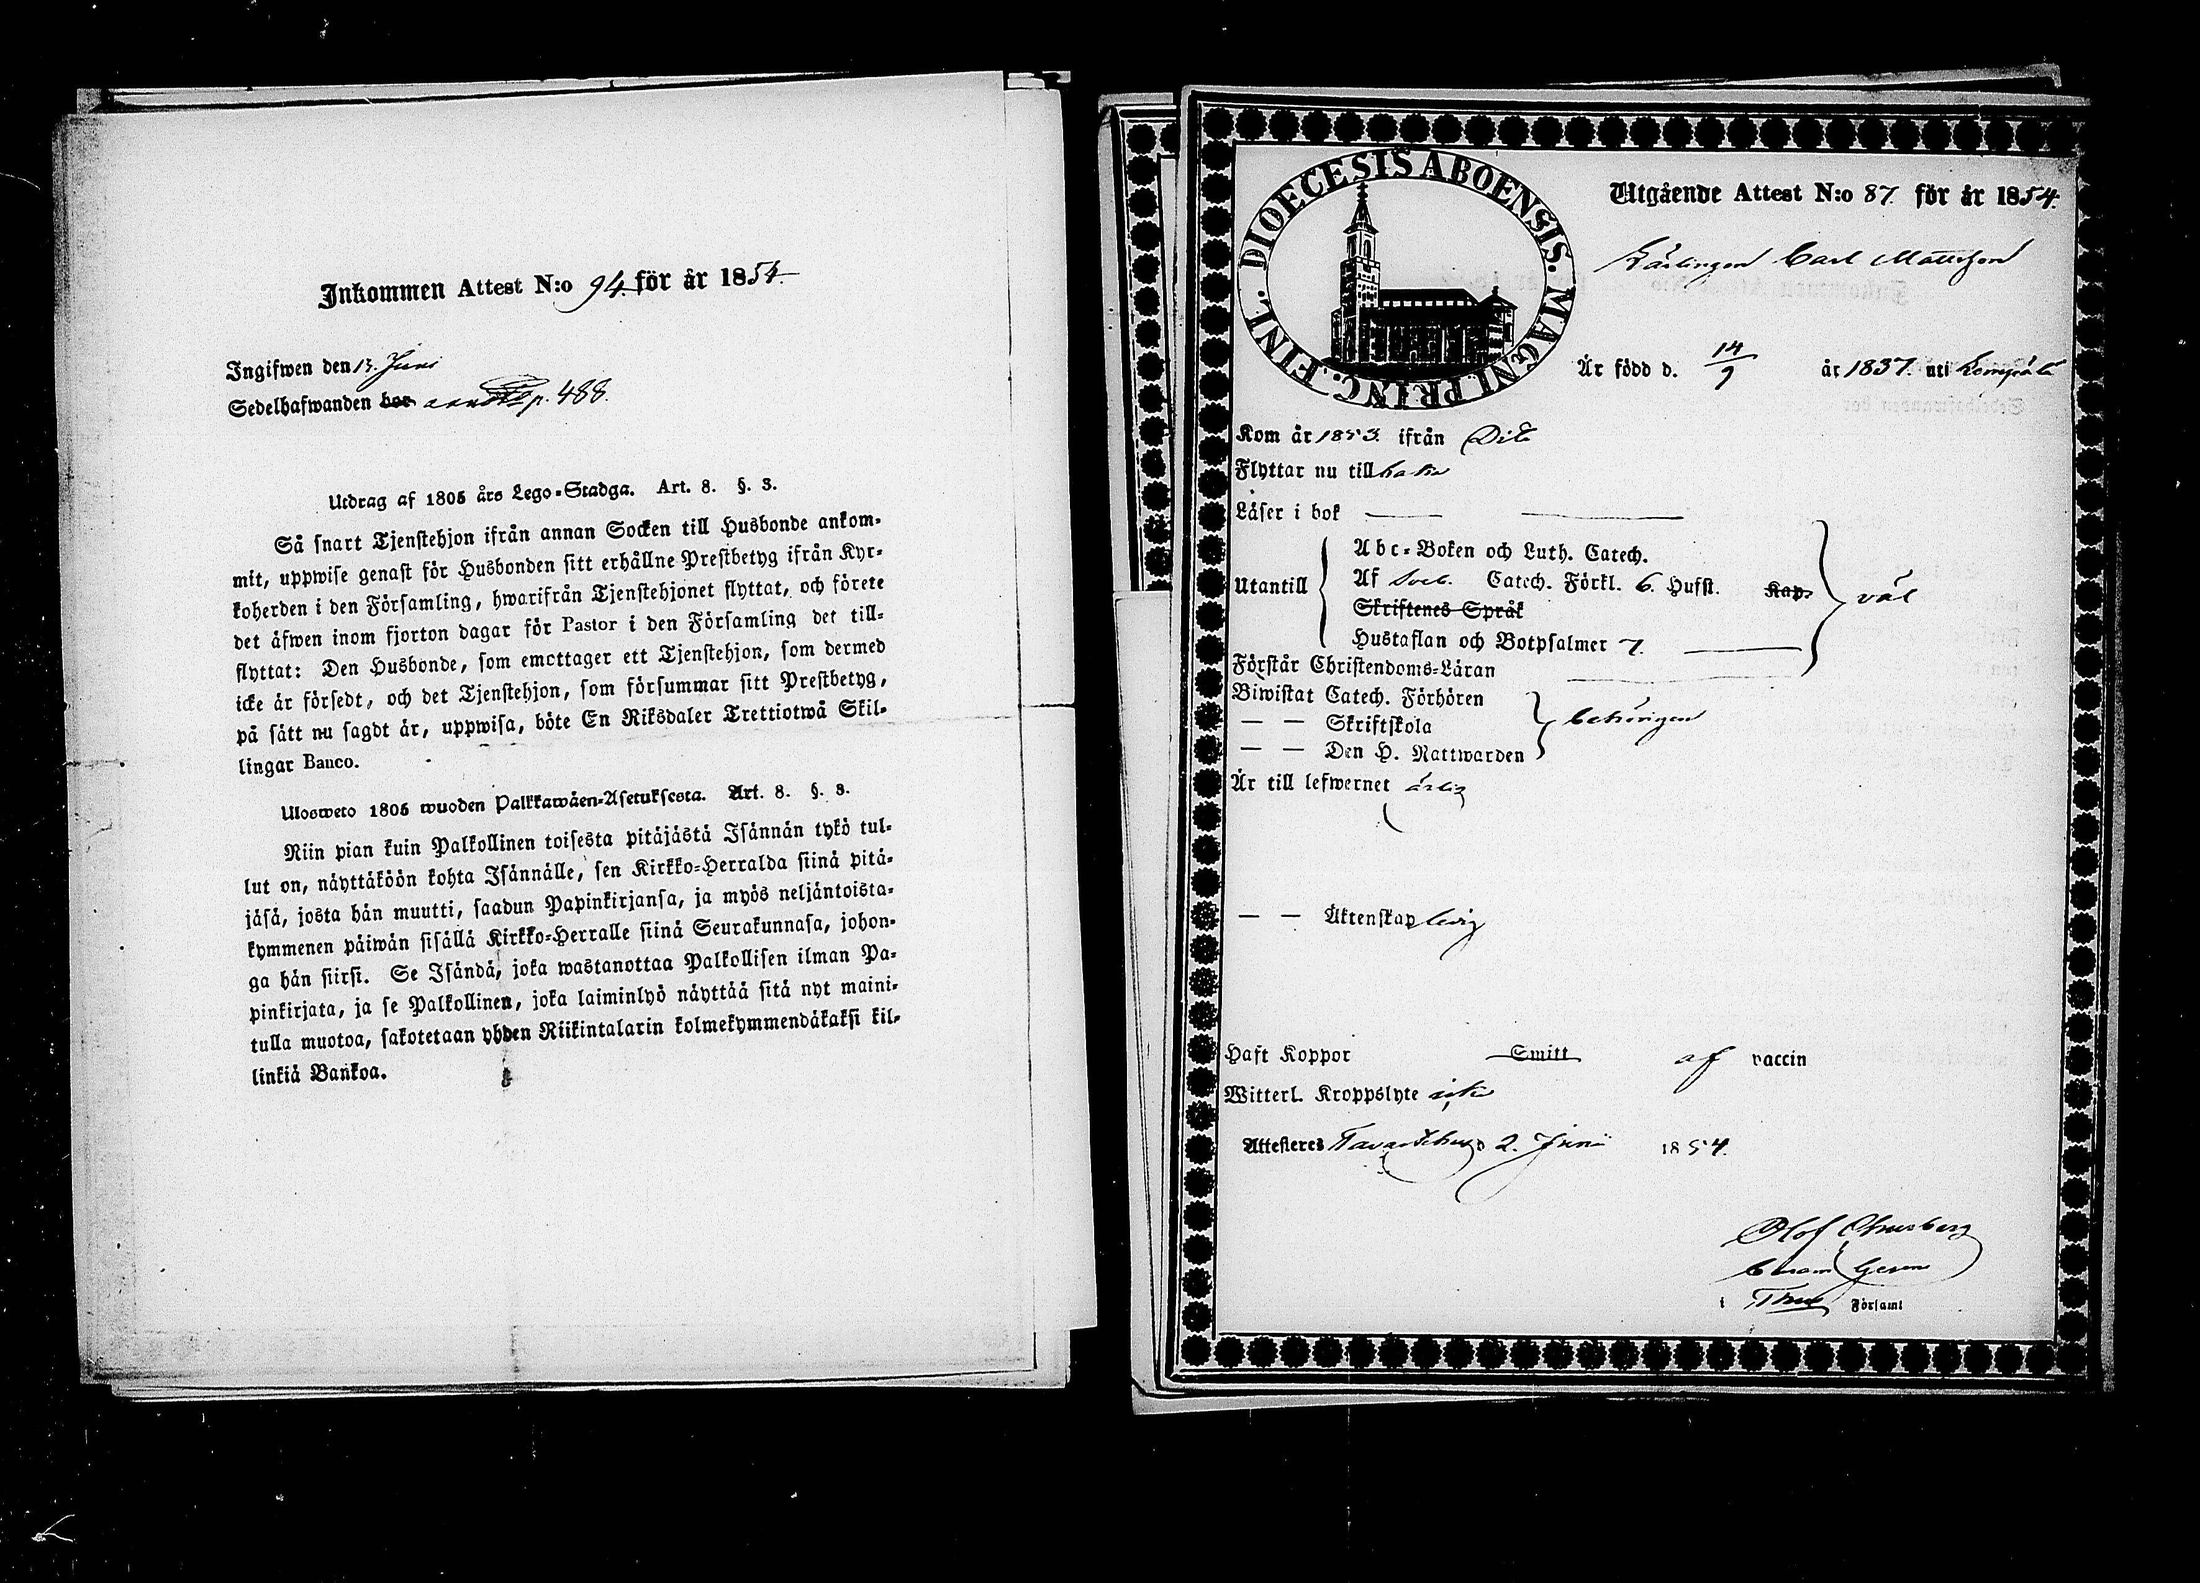 Inkommen Attest N:o 94. för år 1854.
Ingifwen den 13. Juni
Sedelhafwanden bor p. 488.
Utdrag af 1805 års Lego-Stadga. Art. 8. §. 3.
Så snart Tjenstehjon ifrån annan Socken till Husbonde ankom-
mit, uppwise genast för Husbonden sitt erhållne Prestbetyg ifrån Kyr-
koherden i den Församling, hwarifrån Tjenstehjonet flyttat, och förete
det äfwen inom fjorton dagar för Pastor i den Församling det till-
flyttat: Den Husbonde, som emottager ett Tjenstehjon, som dermed
icke är försedt, och det Tjenstehjon, som försummar sitt Prestbetyg,
på sätt nu sagdt är, uppwisa, böte En Riksdaler Trettiotwå Skil-
lingar Banco.
Ulosweto 1805 wuoden Palkkawäen-Asetuksesta. Art. 8. §. 3.
Niin pian kuin Palkollinen toisesta pitäjästä Isännän tykö tul-
lut on, näyttäköön kohta Isännälle, sen Kirkko-Herralda siinä pitä-
jäsä, josta hän muutti, saadun Papinkirjansa, ja myös neljäntoista-
kymmenen päiwän sisällä Kirkko-Herralle siinä Seurakunnasa, johon-
ga hän siirsi. Se Isändä, joka wastanottaa Palkollisen ilman Pa-
pinkirjata, ja se Palkollinen, joka laiminlyö näyttää sitä nyt maini-
tulla muotoa, sakotetaan yhden Riikintalarin kolmekymmendäkaksi kil-
linkiä Bankoa.
DIOECESIS ABOENSIS. MAGNI. PRINC. FINL.
Utgående Attest N:o 87. för år 1854.
Lärlingen Carl Mattsson
Är född d. 14/9 år 1837. uti
Kom år 1853. ifrån Dito
Flyttar nu till
Läser i bok
Utantill
Abc-Boken och Luth. Catech.
Af Sveb. Catech. Förkl. 6. Hufst. Kap.
Skriftenes Språk
Hustaflan och Botpsalmer 7.
väl
Förstår Christendoms-Läran
Biwistat Catech. Förhören
— — Skriftskola
— — Den H. Nattwarden
behörigen
Är till lefwernet ärlig
— — Äktenskap ledig
Haft Koppor Smitt af vaccin
Witterl. Kroppslyte icke
Attesteras Tavastehus 2. Juni 1854.
Olof
i Församl